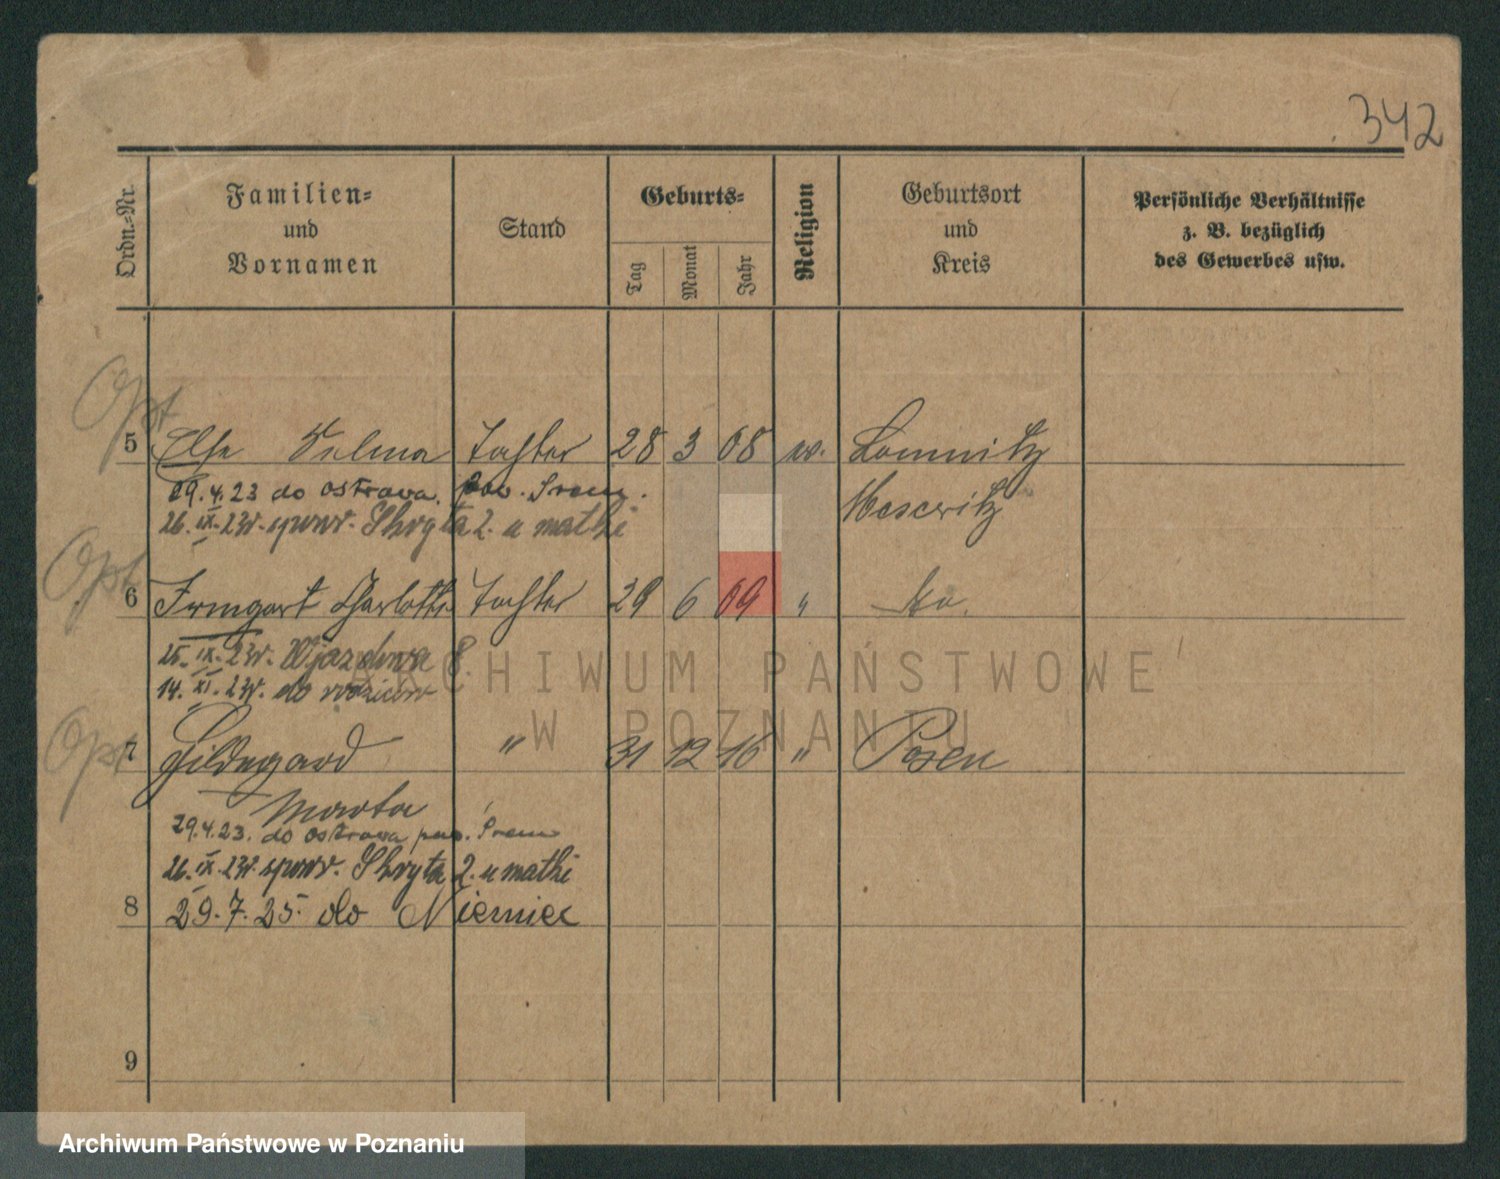 342
Ordn.-Nr.
Familien-
und
Vornamen
Stand
Geburts-
Tag
Monat
Jahr
Religion
Geburtsort
und
Kreis
Persönliche Verhältnisse
z. B. bezüglich
des Gewerbes usw.
Opt
5 Else Selma Tochter 28 3 08 ev. Lomnitz
29.4.23 do Ostrowa pow. Śrem. Meseritz
26.IX.23r. spow. Skryta 2. u matki
Opt
6 Irmgart Charlotte Tochter 29 6 09 " do.
25.IX.23r. Wjazdowa 8.
14.XI.23r. do rodziców
Opt
7 Hildegard " 31 12 16 " Posen
Marta
29.4.23. do Ostrowa pow. Śrem
26.IX.23r. spow. Skryta 2. u matki
8 29.7.25. do Niemiec
9
ARCHIWUM PAŃSTWOWE
W POZNANIU
Archiwum Państwowe w Poznaniu